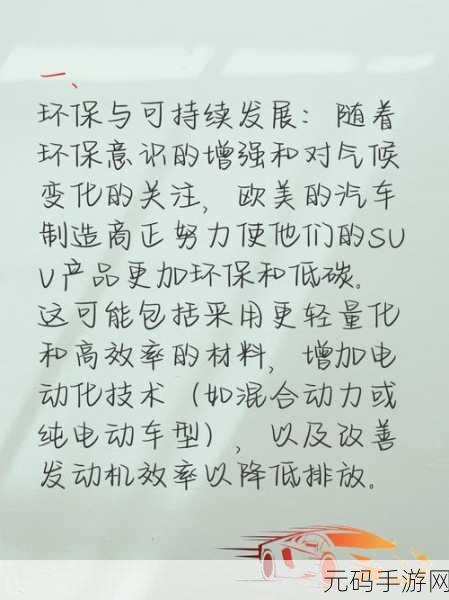 一、
环保与可持续发展：随着
环保意识的增强和对气候
变化的关注，欧美的汽车
制造商正努力使他们的SU
V产品更加环保和低碳。
这可能包括采用更轻量化
和高效率的材料，增加电
动化技术（如混合动力或
纯电动车型），以及改善
发动机效率以降低排放。
元码手游网